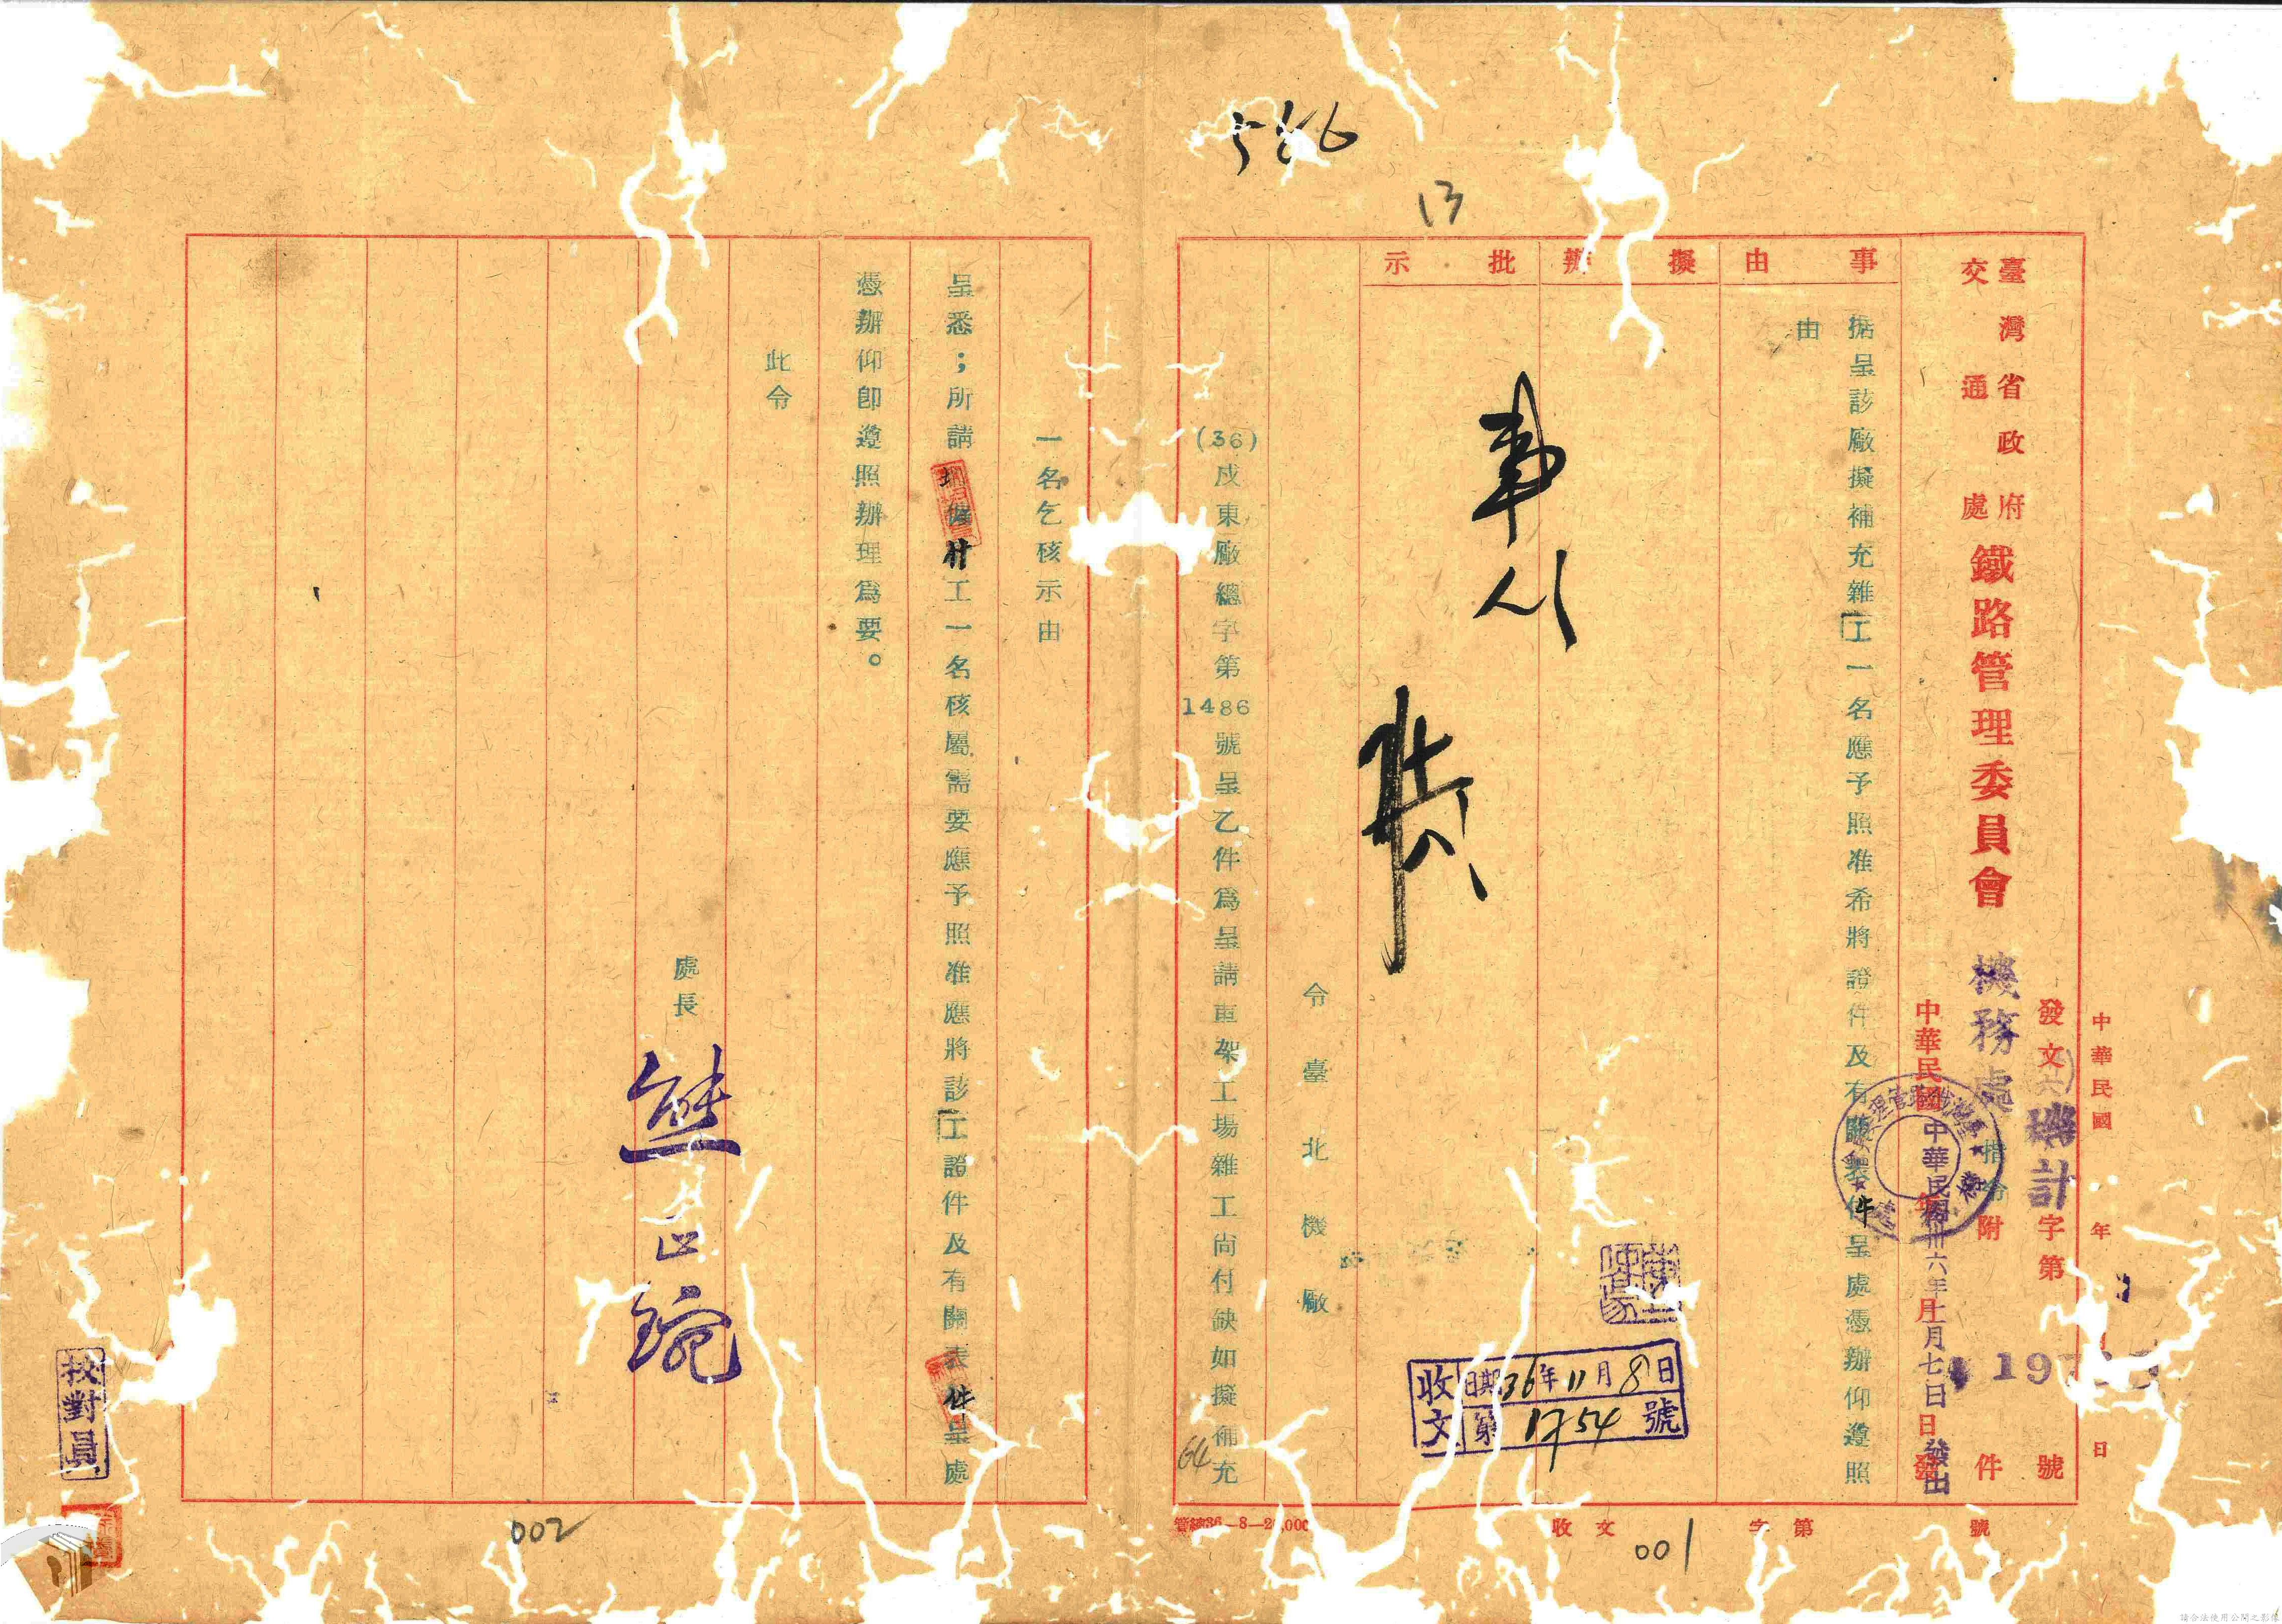 586
13
中華民國 年 日
發文 機計 字第 號
臺灣省政府
交通處
鐵路管理委員會 機務處 指令 附件
中華民國 年 月 日 發
中華民國卅六年十一月七日 發出
事由
擬辦
批示
据呈該廠擬補充雜工一名應予照准希將證件及有關表件呈處憑辦仰遵照
由
事人
收文 日期 36年11月8日
第 1754 號
令臺北機廠
(36)戌東廠總字第1486號呈乙件為呈請車架工場雜工尚付缺如擬補充
64
一名乞核示由
呈悉;所請 工一名核屬需要應予照准應將該工證件及有關表件呈處
憑辦仰即遵照辦理為要。
此令
處長 熊正琬
校對員
管總36-8-20,000
收文 字第 號
001
002
請合法使用公開之影像